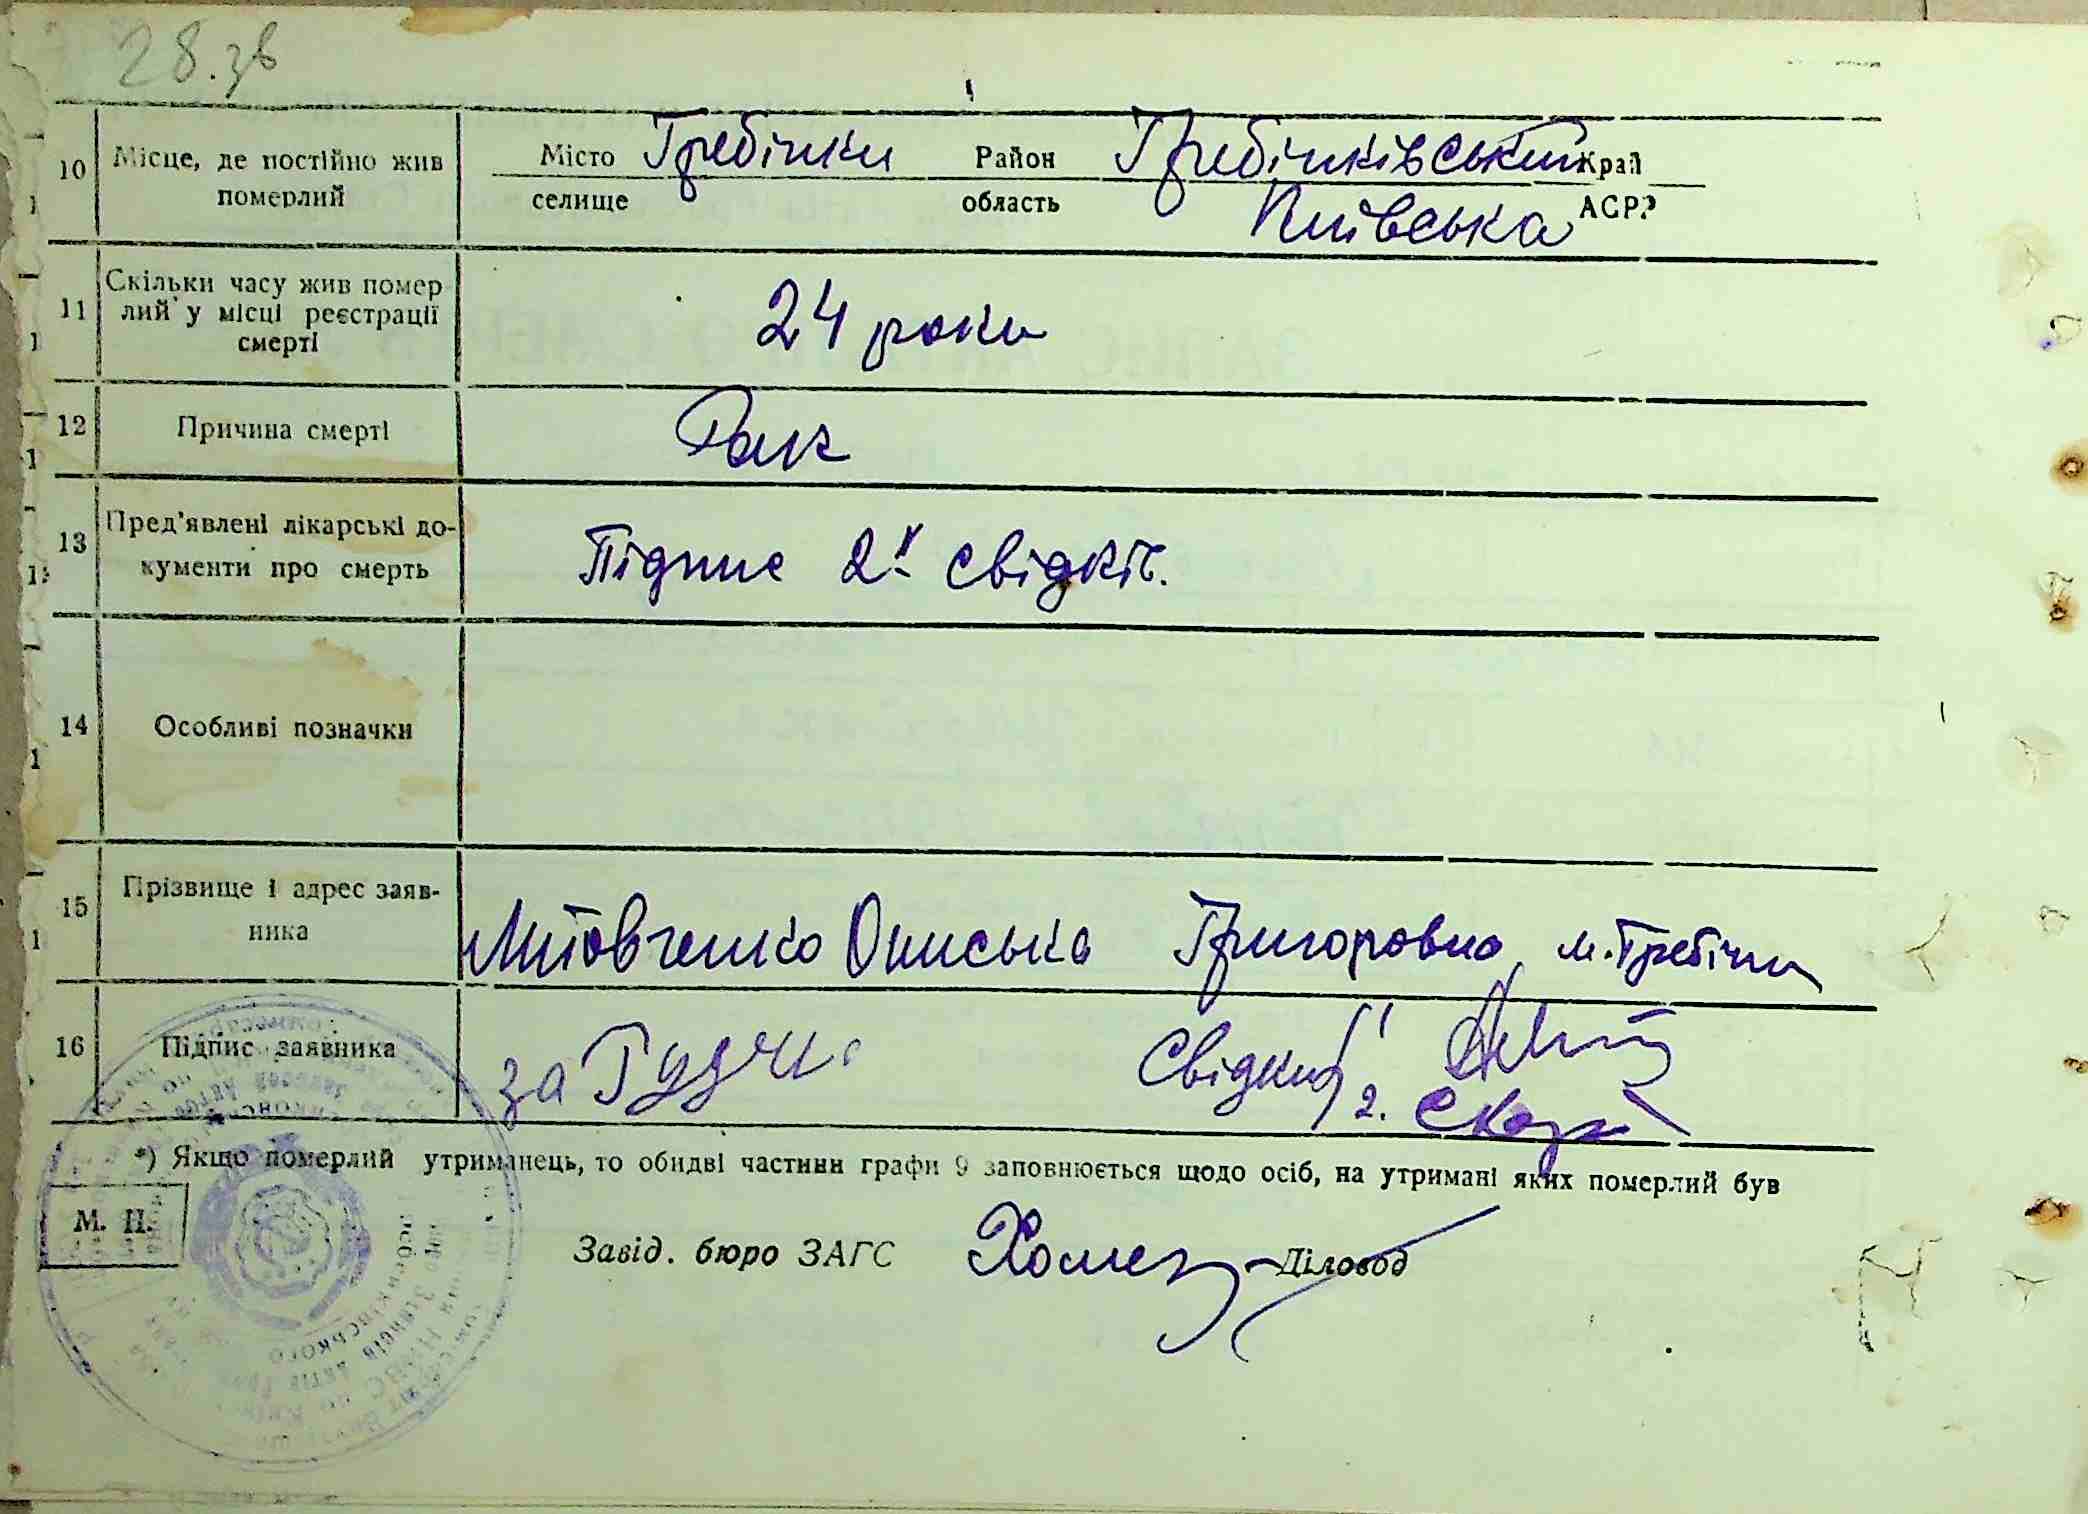 28.зв
10 Місце, де постійно жив померлий
Місто Гребінки Район Гребінківський Край
селище область Київська АСРР
11 Скільки часу жив помер
лий у місці реєстрації
смерті
24 роки
12 Причина смерті Рак
13 Пред'явлені лікарські до-
кументи про смерть
Підпис 2х свідків.
14 Особливі позначки
15 Прізвище і адрес заяв-
ника
Литовченко Ониська Григоровна, м. Гребінки
16 Підпис заявника
за
Свідки 1
2.
*) Якщо померлий утриманець, то обидві частини графи 9 заповнюється щодо осіб, на утримані яких померлий був
М. П.
Завід. бюро ЗАГС Діловод